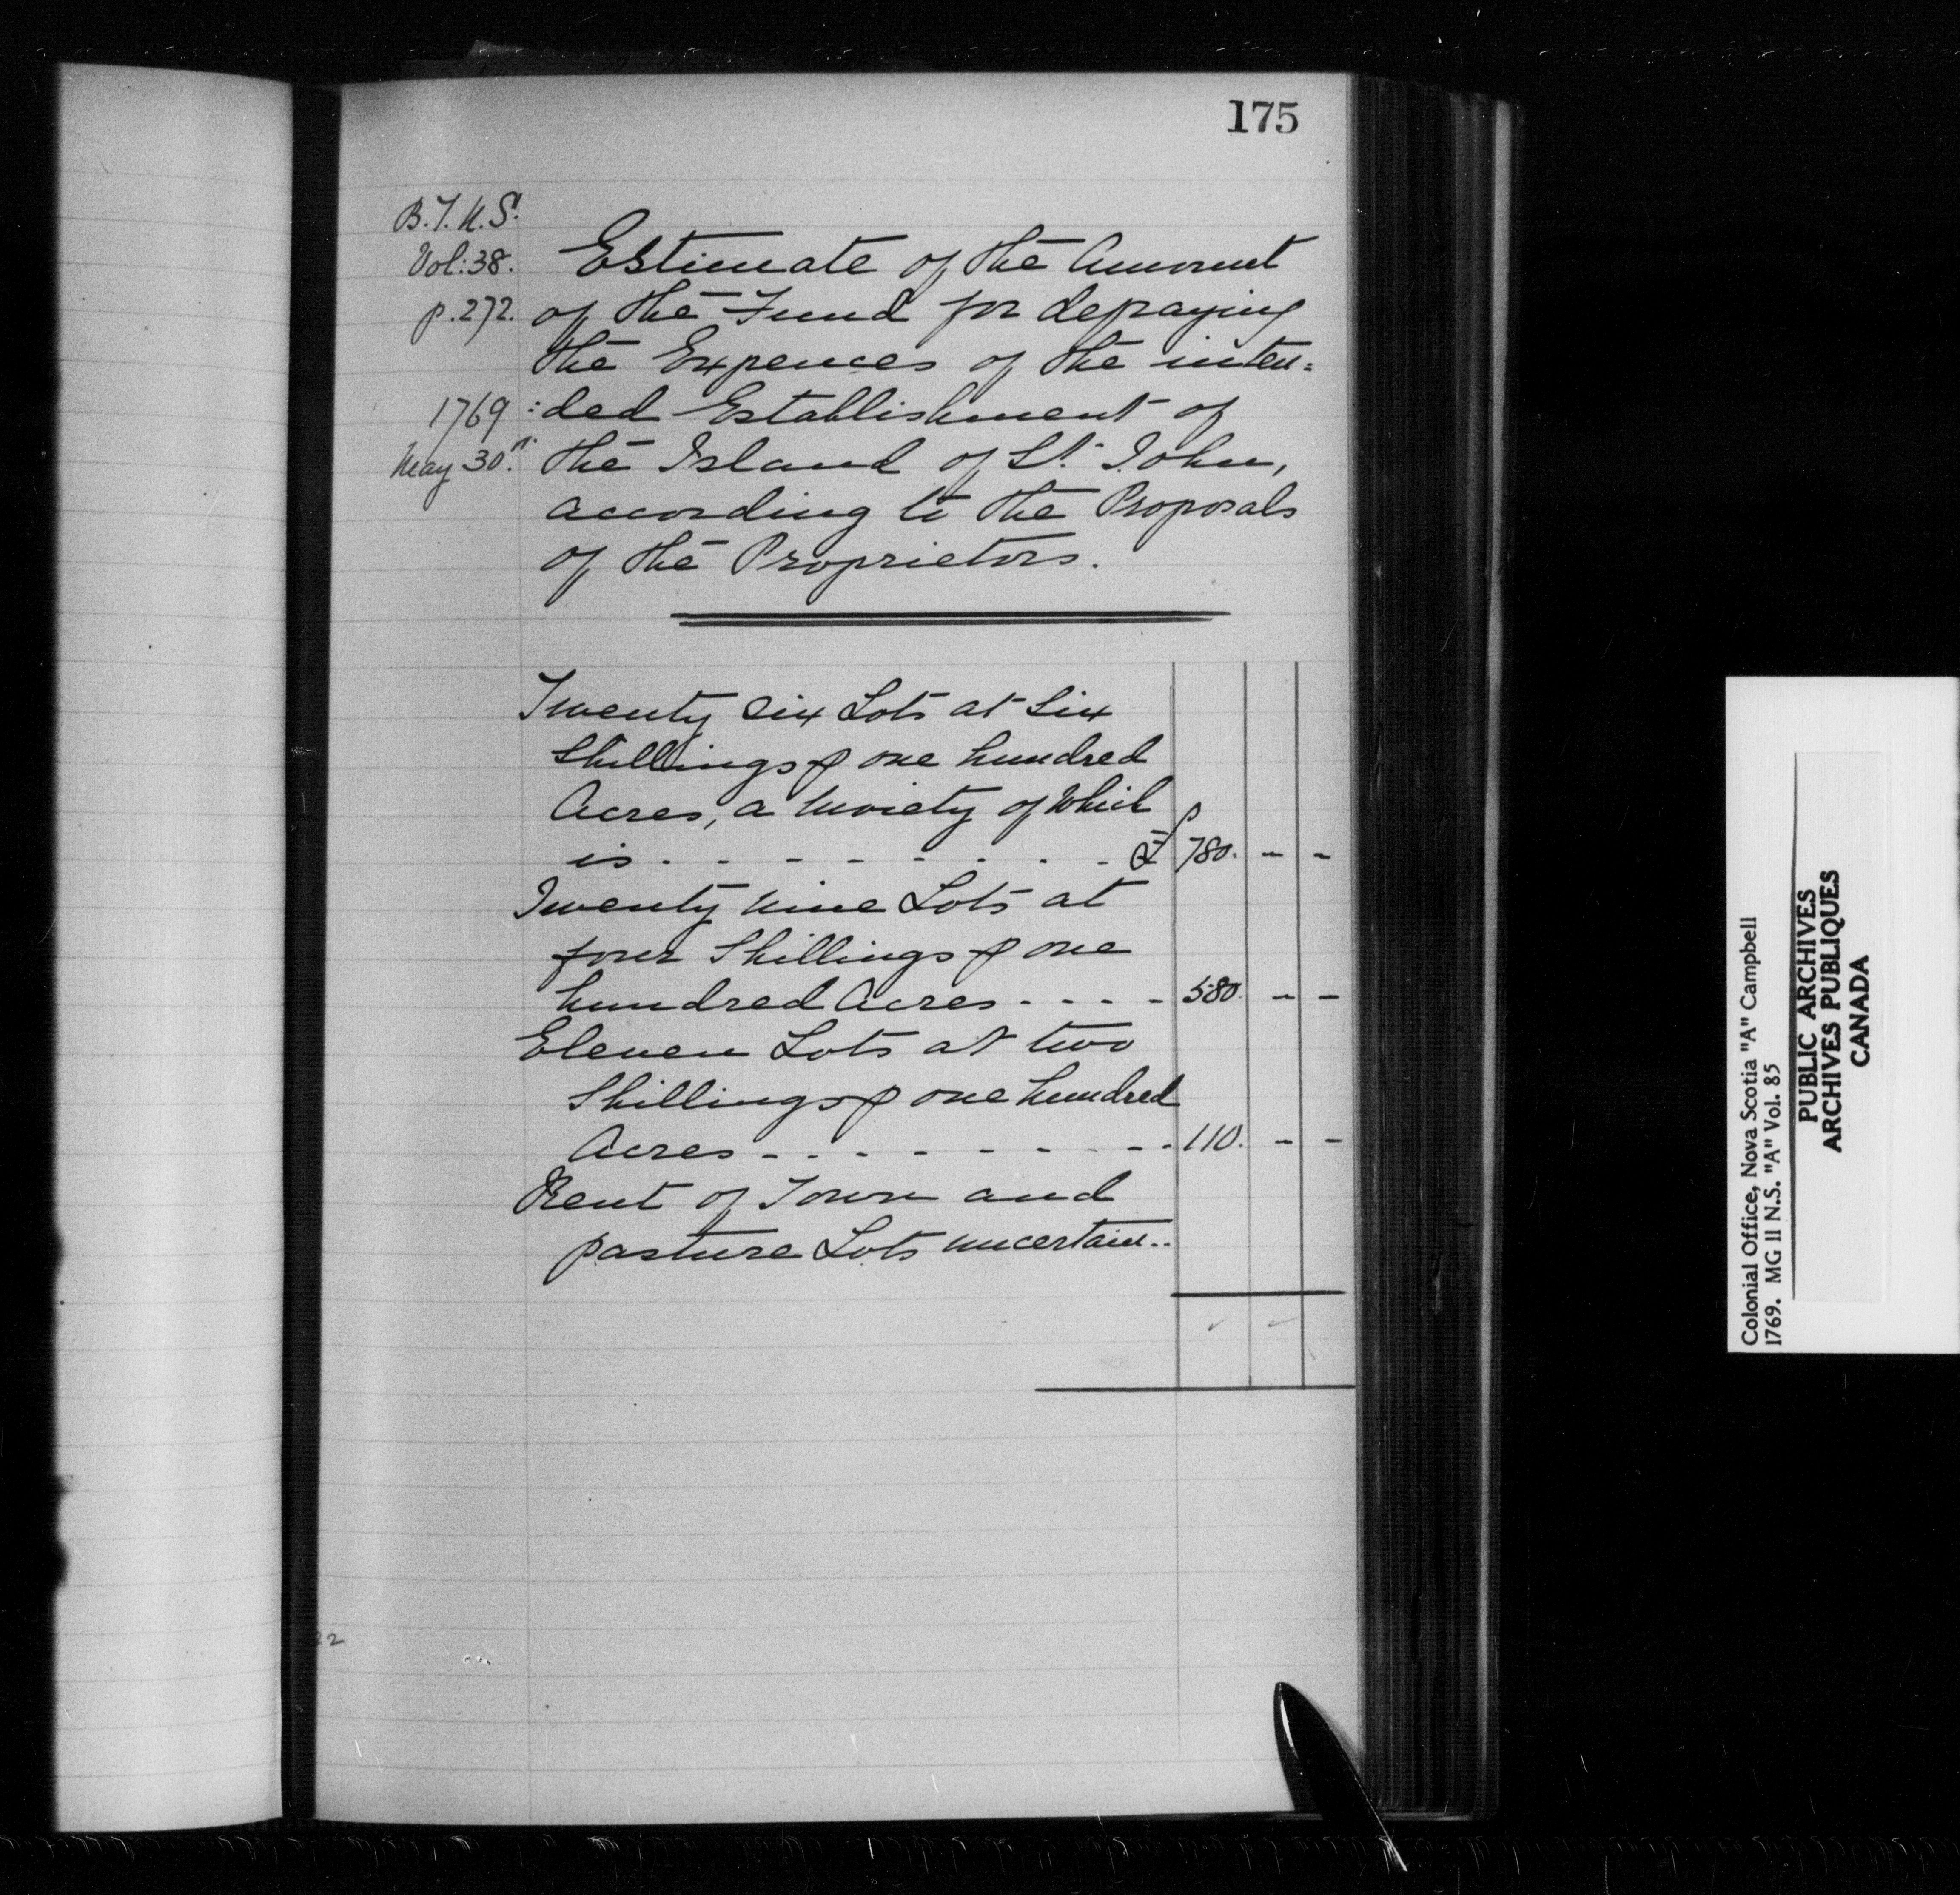 175
B.T.N.S.
Vol: 38.
p. 272.
1769
May 30th.
Estimate of the Amount
of the Fund for defraying
the Expences of the inten=
:ded Establishment of
the Island of St. John,
according to the Proposals
of the Proprietors.
Twenty six Lots at Six
Shillings ⅌ one hundred
Acres, a Moiety of which
is . - - - - - - - - £ 780. - -
Twenty nine Lots at
four Shillings ⅌ one
hundred Acres - - - - 580. - -
Eleven Lots at two
Shillings ⅌ one hundred
Acres - - - - - - - - 110. - -
Rent of Town and
pasture Lots uncertain..
22
Colonial Office, Nova Scotia "A" Campbell
1769. MG 11 N.S. "A" Vol. 85
PUBLIC ARCHIVES
ARCHIVES PUBLIQUES
CANADA